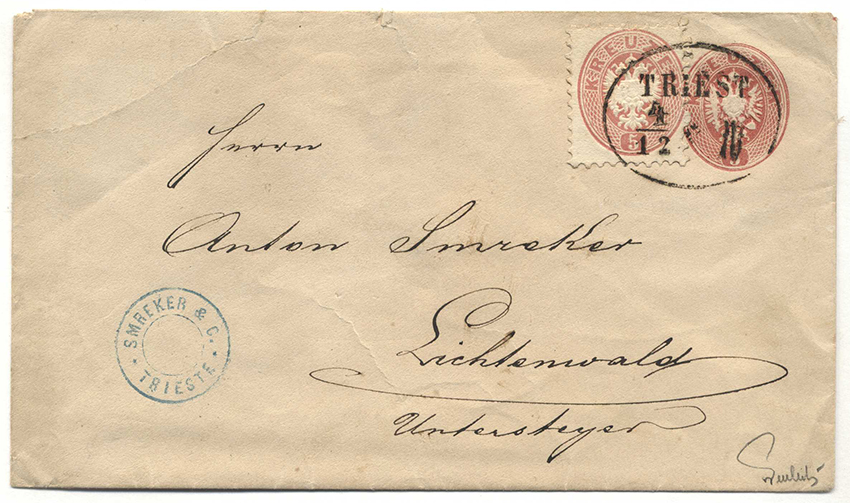 KREUZER
5
TRIEST
12
Herrn
Anton Smreker
Lichtenwald
Untersteyer
SMREKER & C.
TRIESTE